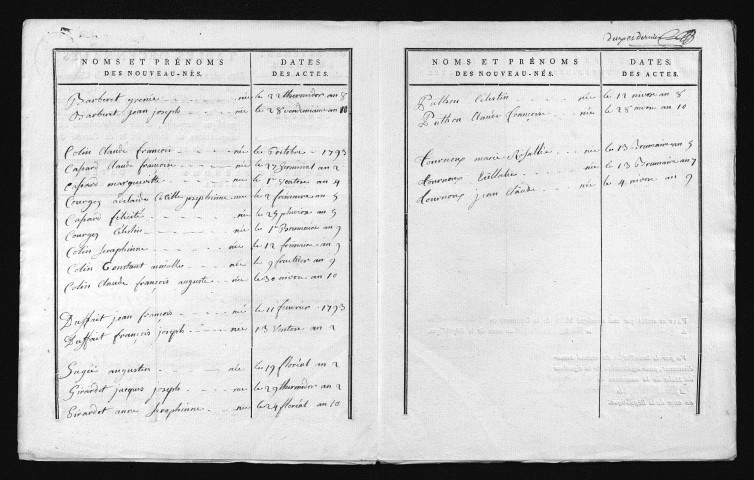 NOMS ET PRÉNOMS
DES NOUVEAU-NÉS.
DATES
DES ACTES.
Barberet née le 22 thermidor an 8
Barberet jean joseph née le 28 vendemiaire an 10
Colin Claude françois né le 1793
Capard Claude francoise née le 27 Germinal an 2
Capard marguerite née le 1er ventose an 4
Courgey adelaide josephinne née le 2 frimaire an 5
Capard felicité née le 25 pluviose an 5
Courgey Celestin né le 1er Brumaire an 9
Colin Seraphinne née le 12 frimaire an 9
Colin Constant née le 9 fructidor an 9
Colin Claude françois auguste né le 30 nivose an 10
Duffait jean francois né le 11 fevrier 1793
Duffait françois joseph né 13 ventose an 2
augustin né le 19 floréal an 2
Girardet jacques joseph né le 29 thermidor an 2
Girardet anne Seraphinne née le 24 floréal an 10
NOMS ET PRÉNOMS
DES NOUVEAU-NÉS.
DATES
DES ACTES.
Celestin née le 12 nivose an 8
Claude françoise née le 28 nivose an 10
Tournoux marie Rosallie née le 13 Brumaire an 5
Tournoux Eullalie née le 13 Brumaire an 7
Tournoux jean Claude né le 4 nivose an 9